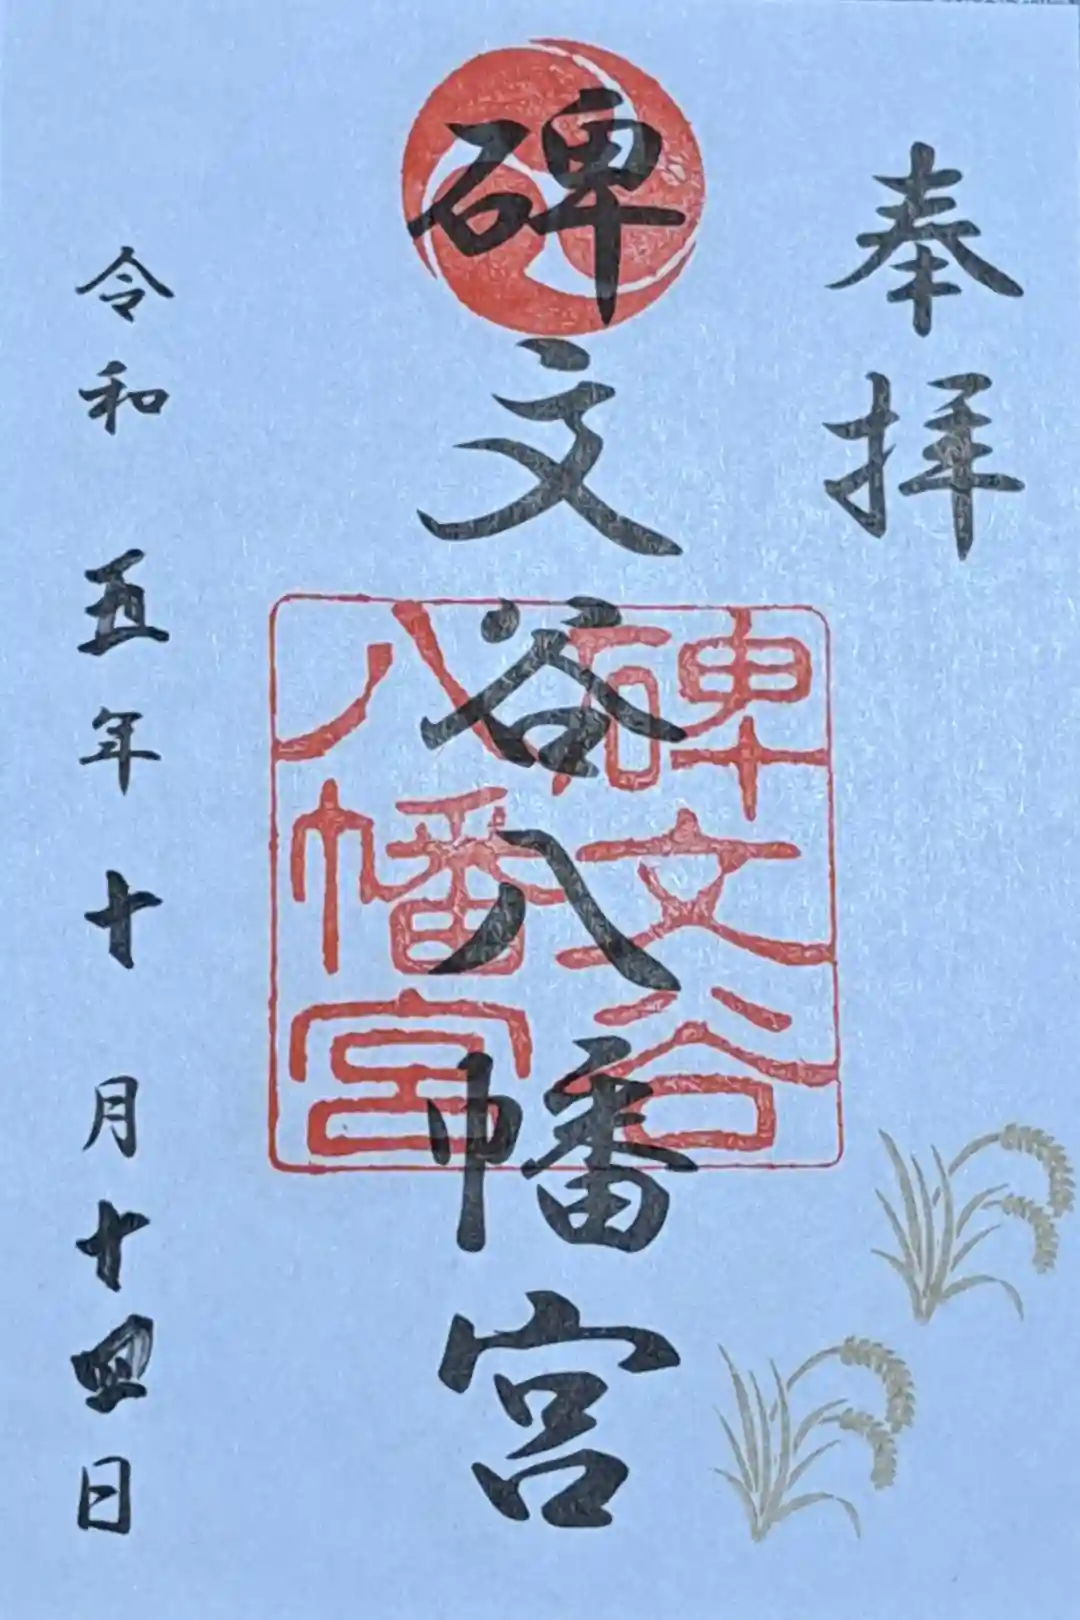 奉拝
碑文谷八幡宮
碑文谷
八幡宮
令和五年十月十四日